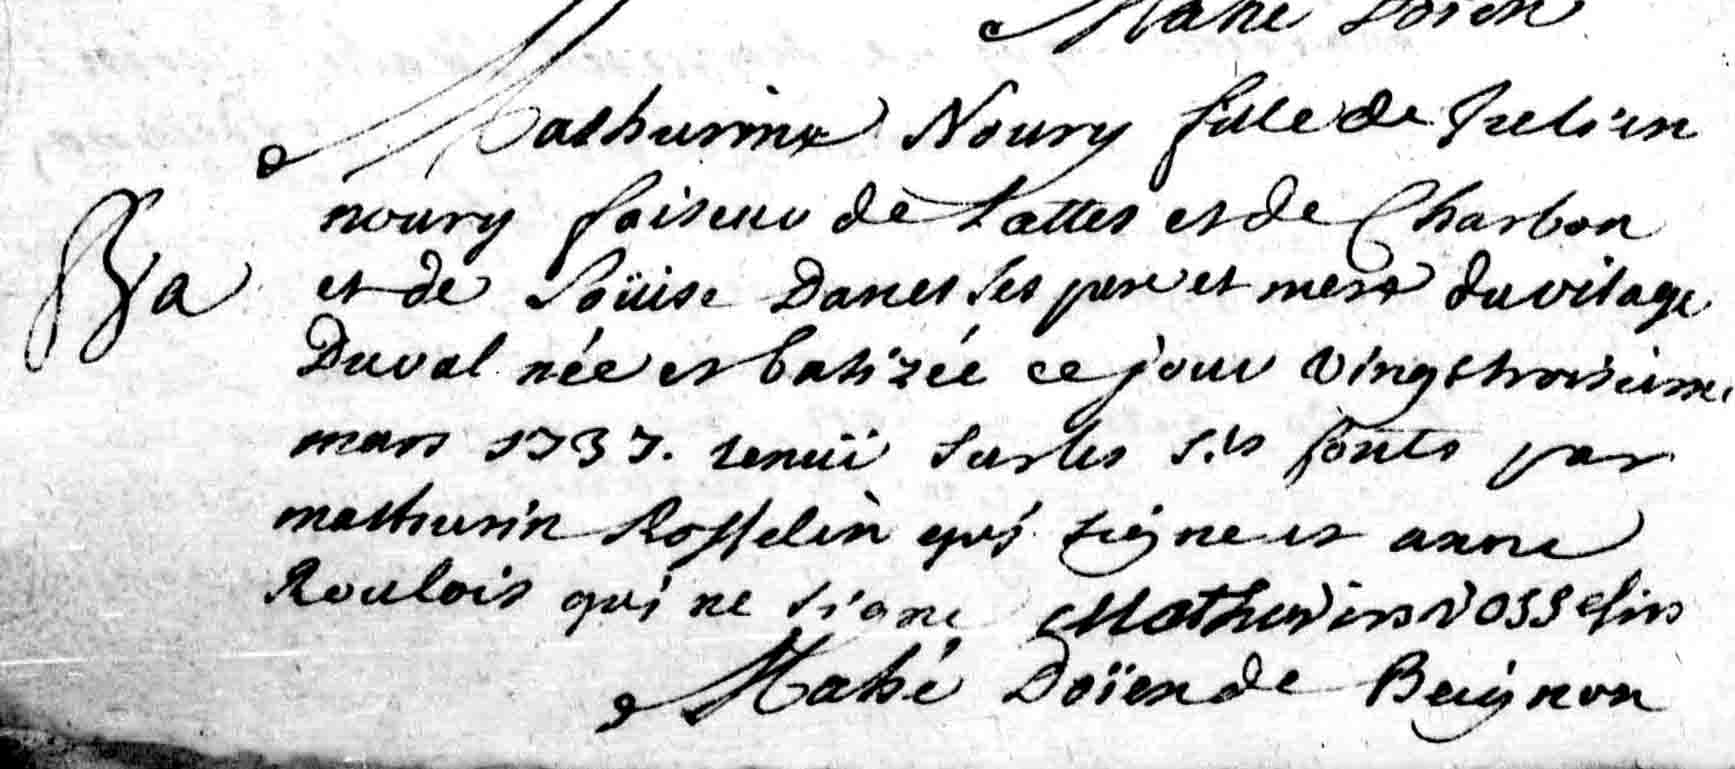 Mahé Doïen
Mathurine Noury fille de Julien
noury faiseur de Lattes et de Charbon
Ba
et de Loüise Danet ses pere et mere du vilage
Duval née et batizée ce jour vingt troisieme
mars 1737. tenuë sur les s.ts fonts par
mathurin Rosselin qui signe et anne
Roulois qui ne signe Mathurin rosselin
Mahé Doïen de Beignon